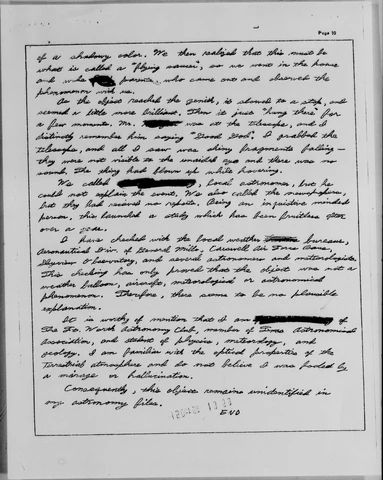 Page 10
of a shadowy color. We then realized that this must be
what is called a "flying saucer", so we went in the house
and woke parents, who came out and observed the
phenomenon with us.
As the object reached the zenith, it slowed to a stop, and
seemed a little more brilliant. Then it just "hung there for
a few moments. Mr. was at the telescope, and I
distinctly remember him saying "Good God". I grabbed the
telescope, and all I saw was shiny fragments falling—
they were not visible to the unaided eye and there was no
sound. The thing had blown up while hovering.
We called , local astronomer, but he
could not explain the event. We also called the newspapers,
but they had received no reports. Being an inquisitive minded
person, this launched a study which has been fruitless after
over a year.
I have checked with the local weather bureaus,
Aeronautical Div. of General Mills, Carswell Air Force Base,
Skyview Observatory, and several astronomers and meteorologists.
This checking has only proved that the object was not a
weather balloon, aircraft, meteorological or astronomical
phenomenon. Therefore, there seems to be no plausible
explanation.
It is worthy of mention that I am of
The Ft. Worth Astronomy Club, member of Texas Astronomical
Association, and student of physics, meteorology, and
geology. I am familiar with the optical properties of the
terrestrial atmosphere and do not believe I was fooled by
a mirage or hallucination.
Consequently, this object remains unidentified in
my astronomy files.
END